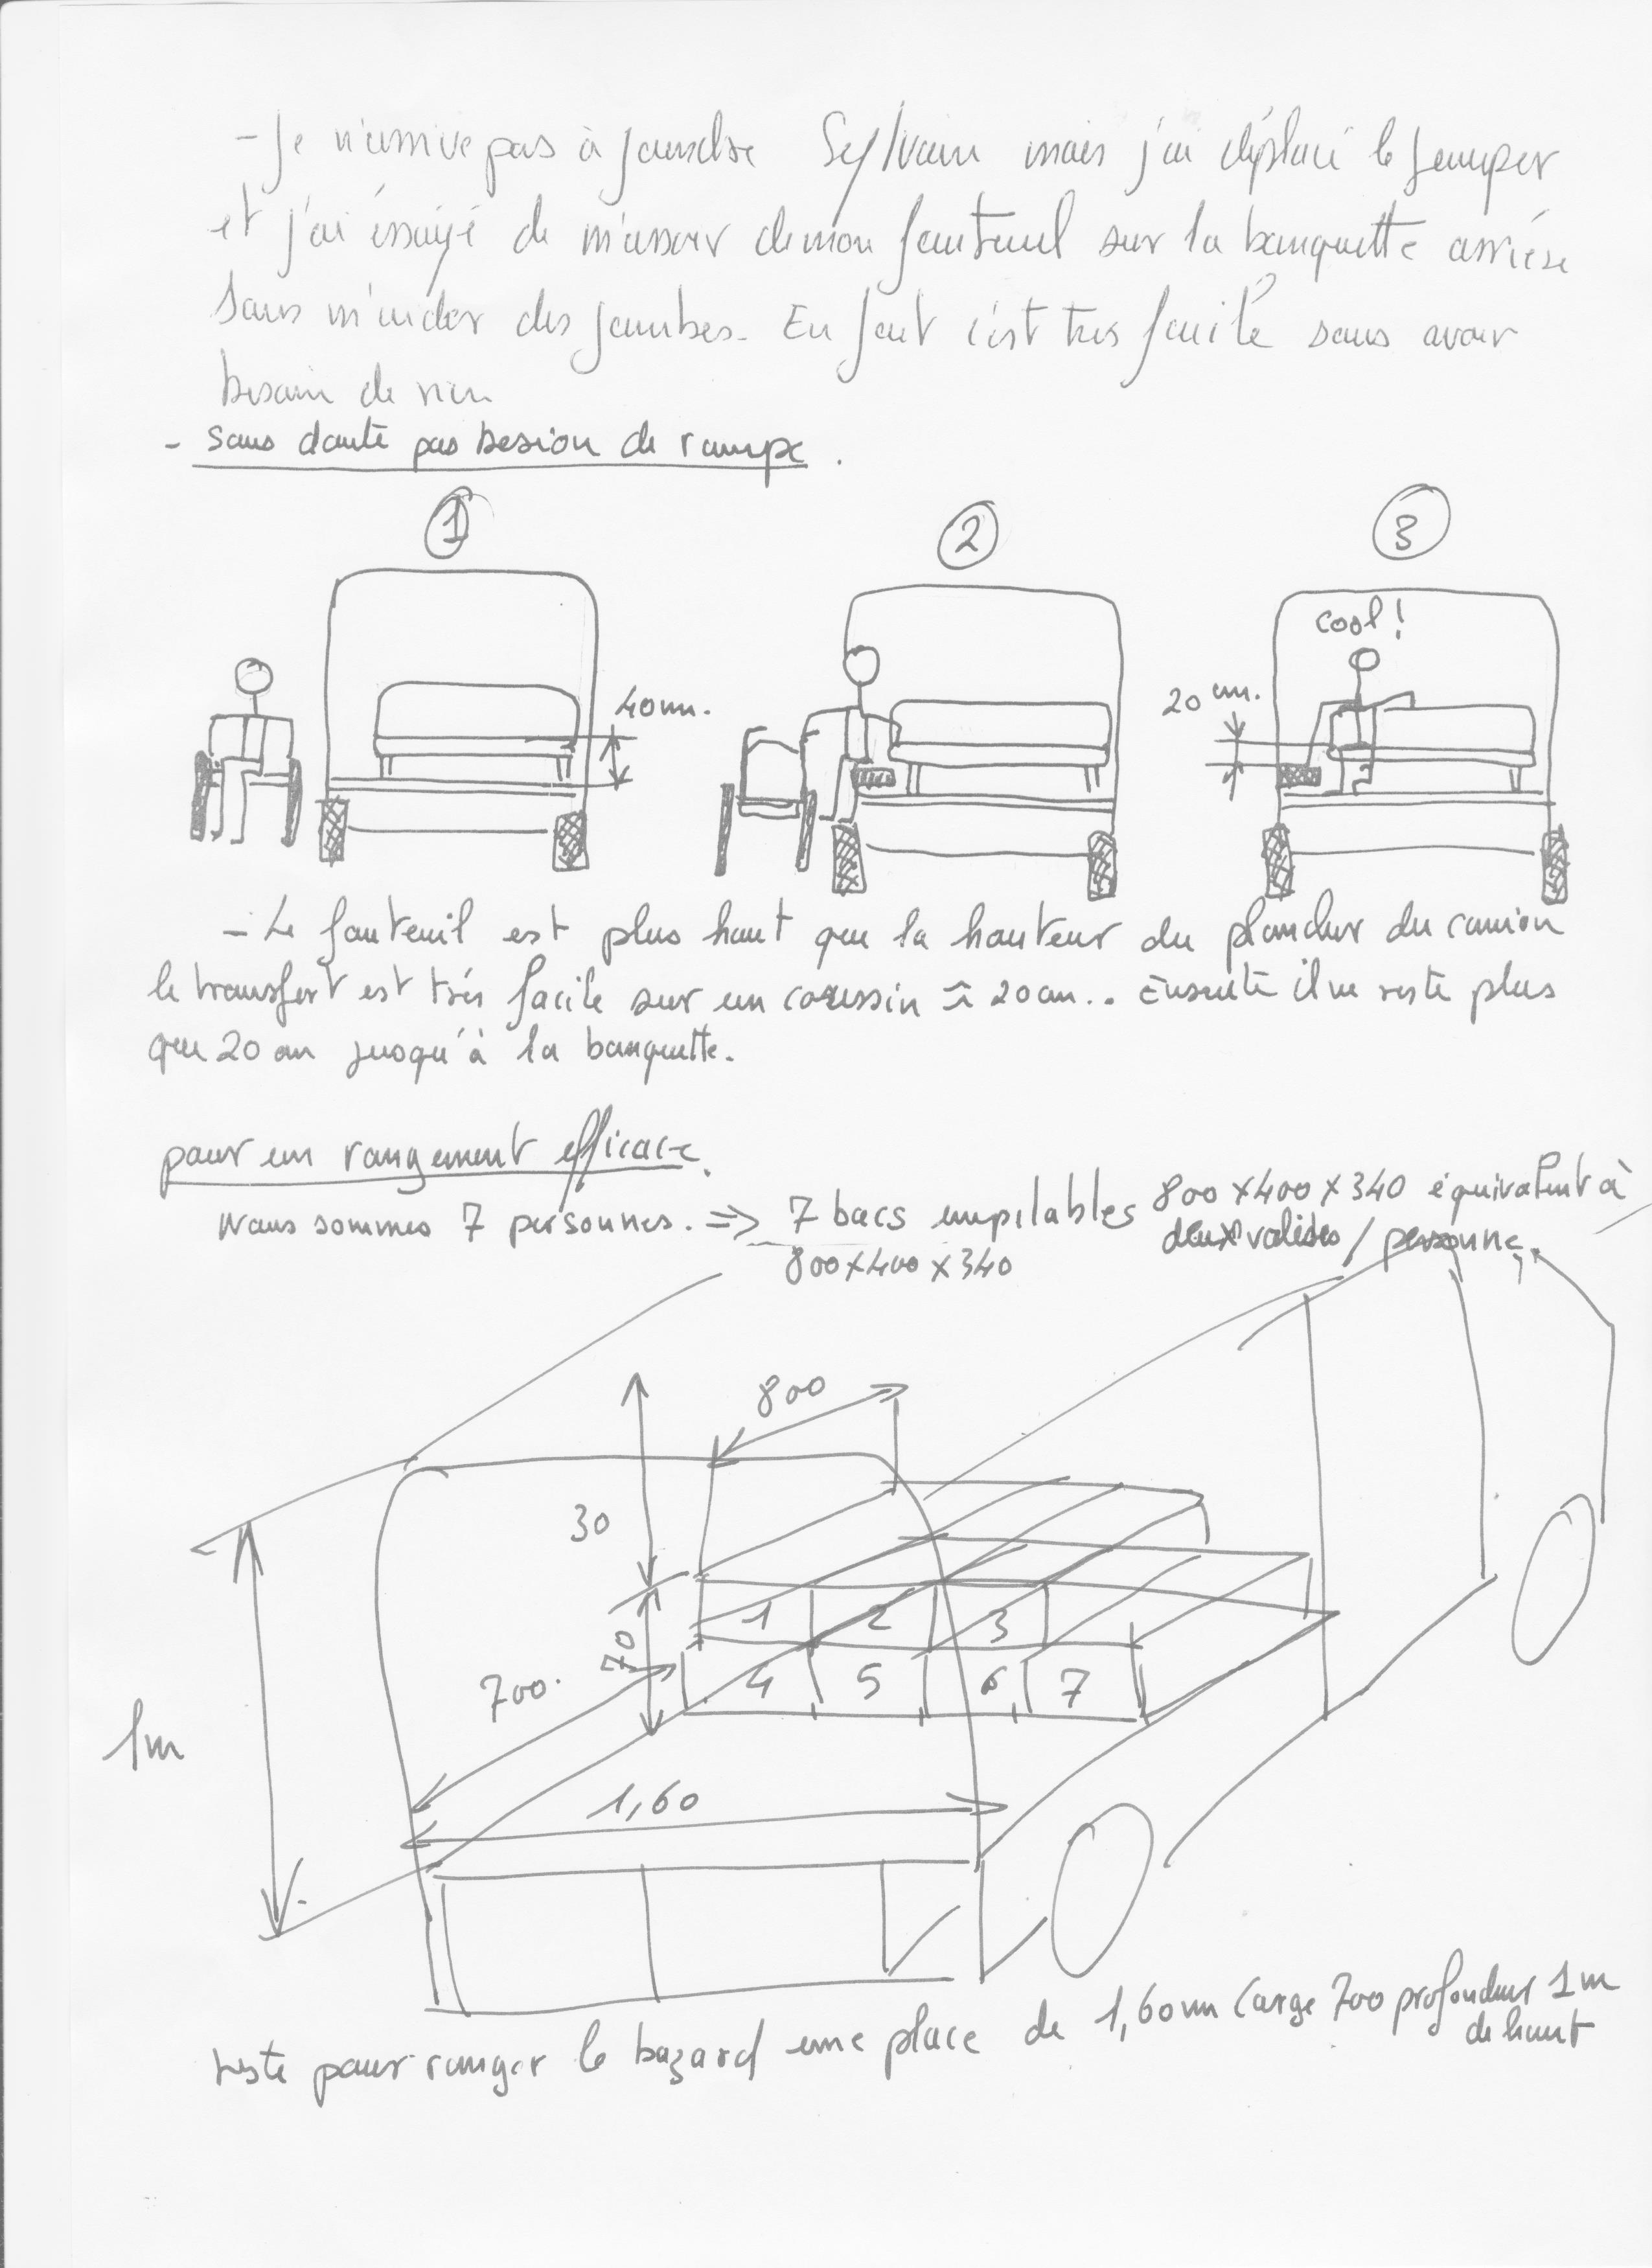 - Je n'arrive pas à joindre Sylvain mais j'ai déplacé le jumper
et j'ai éssayé de m'assoir de mon fauteuil sur la banquette arrière
sans m'aider des jambes. En fait c'est très facile sans avoir
besoin de rien
- sans doute pas besion de rampe.
1
2
3
cool!
40cm.
20 cm.
- Le fauteuil est plus haut que la hauteur du plancher du camion
le transfert est très facile sur un coussin ≃ 20cm.. Ensuite il ne reste plus
que 20 cm jusqu'à la banquette.
pour un rangement efficace.
Nous sommes 7 personnes. => 7 bacs empilables 800x400x340 équivalent à
deux valises / personne.
800x400x340
800
30
70
1 2 3
4 5 6 7
700.
1m
1,60
reste pour ranger le bazard une place de 1,60m large 700 profondeur 1m
de haut